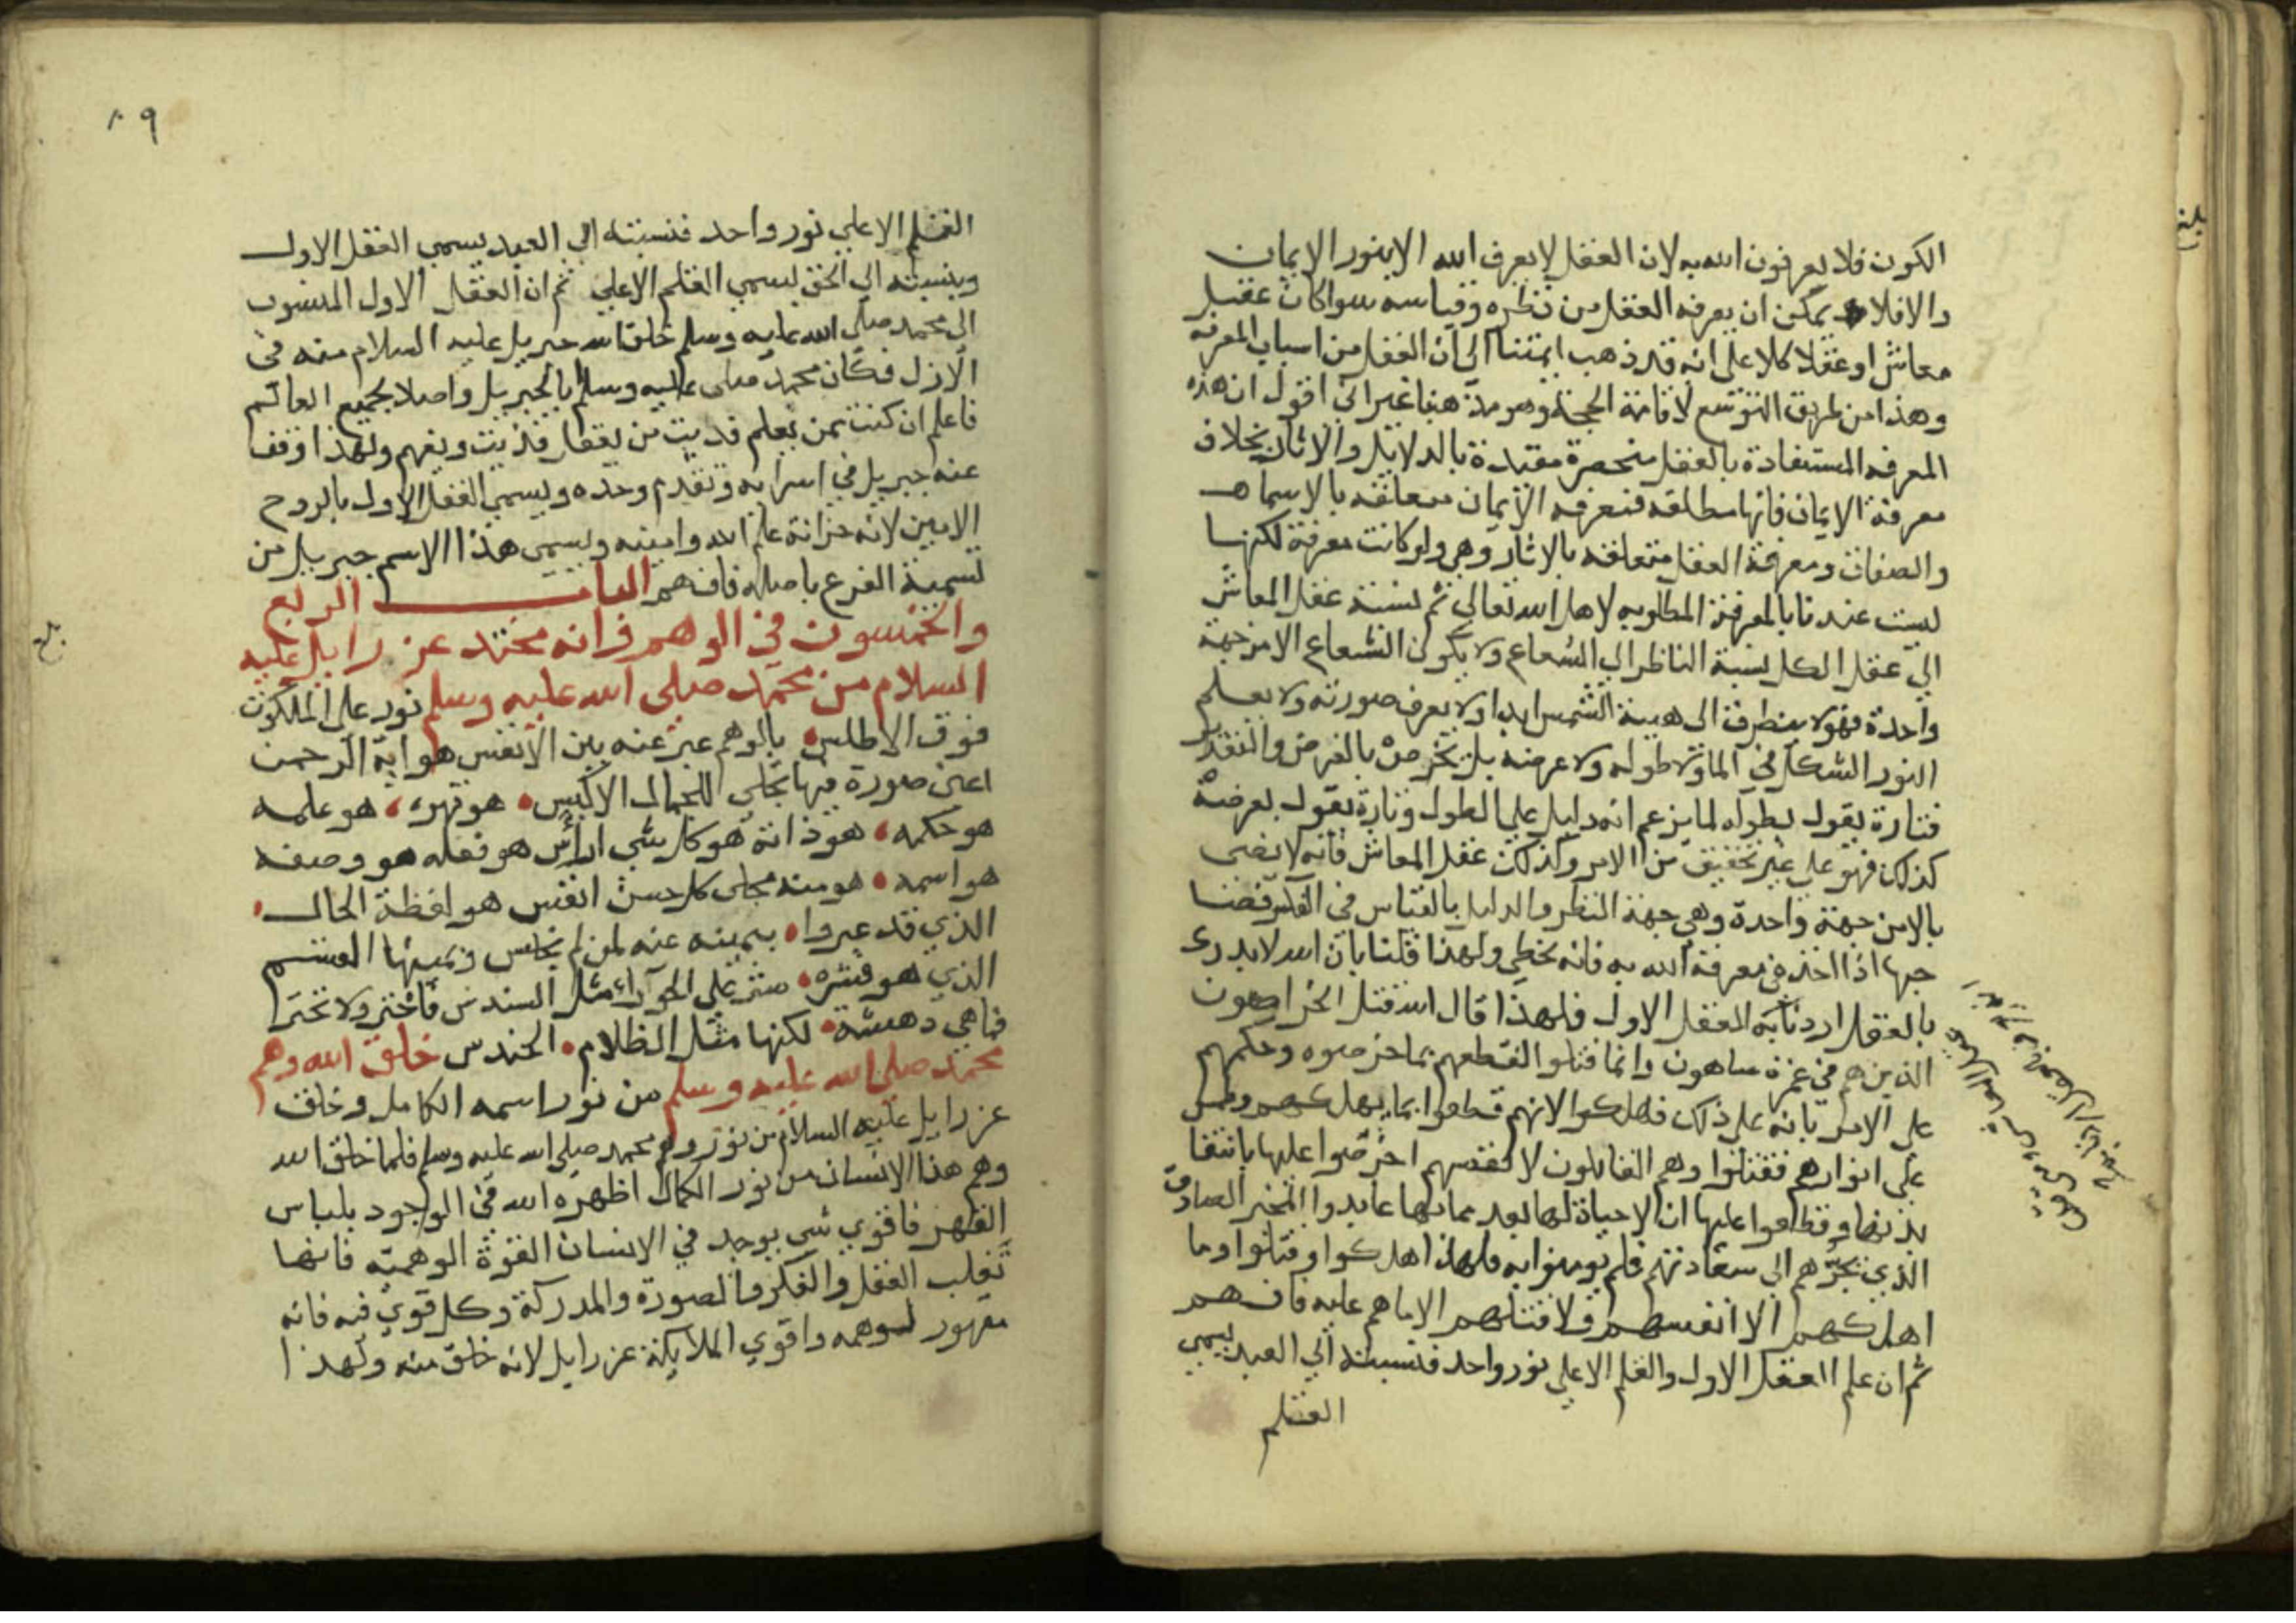 الكون فلا يعرفون الله به لان العقل لا يعرف الله الا بنور الايمان
والا فلا يمكن ان يعرفه العقل من نظره وقياسه سوا كان عقل
معاش او عقلا كلا على انه قد ذهب ايمتنا الى ان العقل من اسباب المعرفه
وهذا من طريق التوسع لاقامة الحجة وهو مذهبنا غير اني اقول ان هذه
المعرفه المستفادة بالعقل منحصرة مقيدة بالدلايل والاثار بخلاف
معرفة الايمان فانها مطلقه فمعرفه الايمان متعلقه بالاسما
والصفات ومعرفة العقل متعلقه بالاثار وهي ولو كانت معرفة لكنها
ليست عندنا بالمعرفة المطلوبه لاهل الله تعالى ثم نسبة عقل المعاش
الي عقل الكل نسبة الناظر الى الشعاع ولا يكون الشعاع الا من جهة
واحدة فهو لا يتطرق الى هيبة الشمس ابدا ولا يعرف صورته ولا يعلم
النور الشكل في الما ولا طوله ولا عرضه بل يخرص بالفرض والتقدير
فتارة يقول بطوله لما يزعم انه دليل على الطول وتارة يقول بعرضه
كذلك فهو على غير تحقيق من الامر وكذلك عقل المعاش فانه لا يضى
الا من جهة واحدة وهي جهة النظر والدليل بالقياس في الفكر
جها اذا اخذ في معرفة الله به فانه يخطي ولهذا قلنا بان الله لا يدرك
بالعقل اردنا به العقل الاول فلهذا قال الله قتل الخراصون
الذين هم في غمرة ساهون وانما قتلوا لقطعهم بما خرصوه وحكمهم
على الامر بانه على ذلك فهلكوا لانهم قطعوا بما يهلكهم وطمس
على انوارهم فقتلوا وهم القاتلون لانفسهم اخرصوا عليها بانتفا
وقطعوا عليها ان لا حياة لها بعد مماتها المخبر الصادق
الذي يجرهم الى سعادتهم فلم يومنوا به فلهذا اهلكوا وقتلوا وما
اهلكهم الا انفسهم ولا قتلهم الا ما هم عليه فافهم
ثم ان علم العقل الاول والقلم الاعلى نور واحد فنسبته الي العبد يسمي
القلم
بلغ
٨٩
القلم الاعلي نور واحد فنسبته الي العبد يسمي العقل الاول
وبنسبته الي الحق يسمي القلم الاعلي ثم ان العقل الاول المنسوب
الى محمد صلى الله عليه وسلم خلق الله جبريل عليه السلام منه في
الازل فكان محمد صلى عليه وسلم ابا لجبريل واصلا لجميع العالم
فاعلم ان كنت ممن يعلم فديت من يعقل فديت ويفهم ولهذا وقف
عنه جبريل في اسرايه وتقدم وحده ويسمي العقل الاول بالروح
الامين لانه خزانة علم الله وامينه ويسمى هذا الاسم جبريل من
تسمية الفرع باصله فافهم الباب الرابع
والخمسون في الوهم وانه محتد عزرايل عليه
السلام من محمد صلى الله عليه وسلم نور على الملكوت
فوق الاطلس بالوهم عبر عنه بين الانفس هو اية الرحمن
اعنى صورة فيها تجلى للجمال الاكيس هو قهره هو علمه
هو حكمه هو ذاته هو كل شي اراس هو فعله هو وصفه
هو اسمه هو منه مجلى كل حسن انفس هو لفظة الخال
الذي قد عبروا بيمينه عنه لمن لم يخس ويمينها القسم
الذي هو قشره ستر على الحوراء مثل السندس فاختر ولا تختر
فما هي دهشة لكنها مثل الظلام الحندس خلق الله وهم
محمد صلى الله عليه وسلم من نور اسمه الكامل وخلق
عزرايل عليه السلام من نور وهم محمد صلى الله عليه وسلم فلما خلق الله
وهم هذا الانسان من نور الكمال اظهره الله في الوجود بلباس
القهر فاقوي شي يوجد في الانسان القوة الوهمية فانها
تغلب العقل والفكر والصورة والمدركة وكل قوي فيه فانه
مقهور لوهمه واقوي الملايكة عزرايل لانه خلق منه ولهذا
بلغ